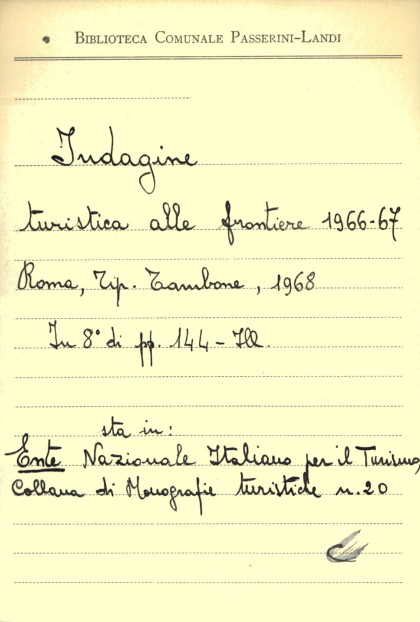 BIBLIOTECA COMUNALE PASSERINI-LANDI
Indagine
turistica alle frontiere 1966-67
Roma, Tip. Tambone, 1968
In 8° di pp. 144 - Ill.
sta in:
Ente Nazionale Italiano per il Turismo,
Collana di Monografie turistiche n. 20